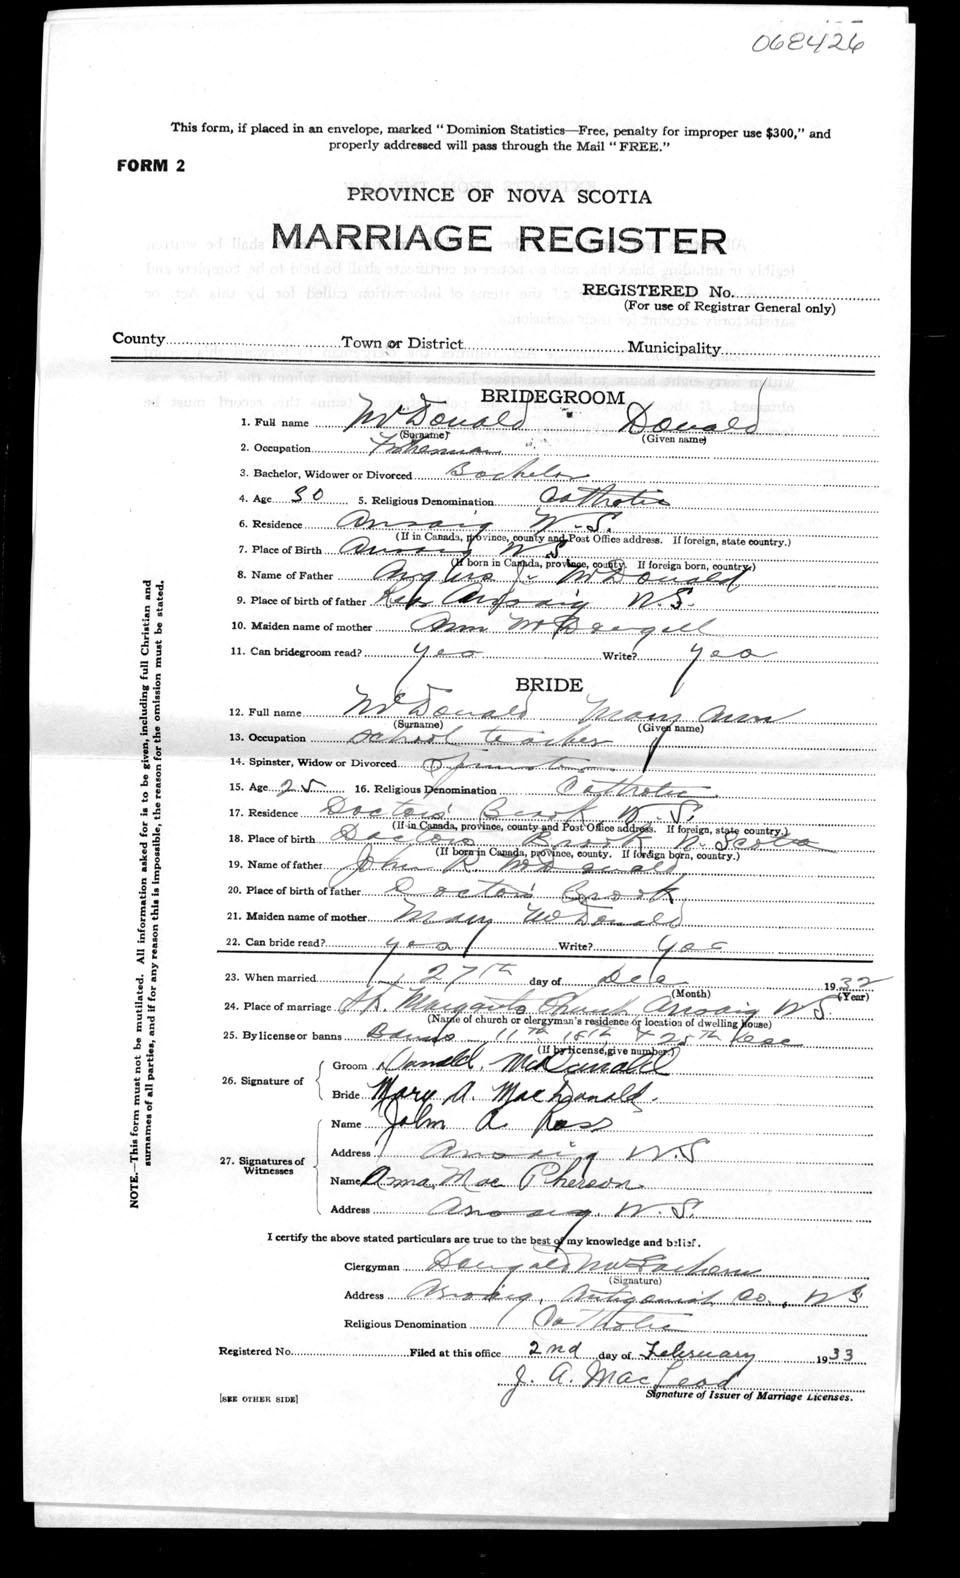 068426
This form, if placed in an envelope, marked "Dominion Statistics—Free, penalty for improper use $300," and
properly addressed will pass through the Mail "FREE."
FORM 2
PROVINCE OF NOVA SCOTIA
MARRIAGE REGISTER
REGISTERED No.
(For use of Registrar General only)
County Town or District Municipality
BRIDEGROOM
1. Full name McDonald Donald
(Surname) (Given name)
2. Occupation Fisherman
3. Bachelor, Widower or Divorced Bachelor
4. Age 30 5. Religious Denomination Catholic
6. Residence Arisaig N.S.
(If in Canada, province, county and Post Office address. If foreign, state country.)
7. Place of Birth Arisaig N.S.
(If born in Canada, province, county. If foreign born, country.)
8. Name of Father Angus J. McDonald
9. Place of birth of father Arisaig N.S.
10. Maiden name of mother Ann
11. Can bridegroom read? yes Write? yes
BRIDE
12. Full name McDonald Mary Ann
(Surname) (Given name)
13. Occupation School teacher
14. Spinster, Widow or Divorced Spinster
15. Age 25 16. Religious Denomination Catholic
17. Residence Doctor's Brook N.S.
(If in Canada, province, county and Post Office address. If foreign, state country.)
18. Place of birth Doctors Brook N. Scotia
(If born in Canada, province, county. If foreign born, country.)
19. Name of father John R. McDonald
20. Place of birth of father Doctor's Brook
21. Maiden name of mother Mary McDonald
22. Can bride read? yes Write? yes
23. When married 27th day of Dec 1932
(Month) (Year)
24. Place of marriage St. Margarets Church Arisaig N.S.
(Name of church or clergyman's residence or location of dwelling house)
25. By license or banns Banns 11th 18th & 25th Dec
(If by license, give number.)
26. Signature of
Groom Donald McDonald
Bride Mary A. MacDonald.
27. Signatures of Witnesses
Name John A. Ross
Address Arisaig N.S
Name Anna MacPherson
Address Arisaig, N.S.
I certify the above stated particulars are true to the best of my knowledge and belief.
Clergyman Dougald McEachern
(Signature)
Address Arisaig, Antigonish Co., N.S
Religious Denomination Catholic
Registered No. Filed at this office 2nd day of February 1933
J. A. MacLeod
Signature of Issuer of Marriage Licenses.
[SEE OTHER SIDE]
NOTE.—This form must not be mutilated. All information asked for is to be given, including full Christian and
surnames of all parties, and if for any reason this is impossible, the reason for the omission must be stated.